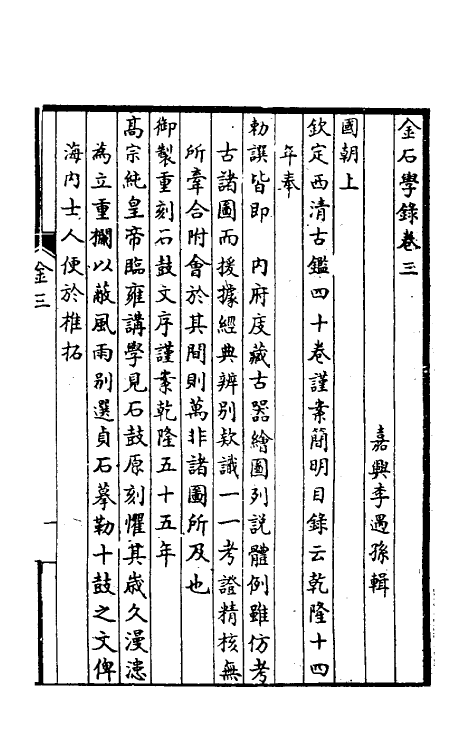 金石學錄卷三
嘉興李遇孫輯
國朝上
欽定西清古鑑四十卷謹案簡明目錄云乾隆十四
年奉
勅譔皆即 內府庋藏古器繪圖列說體例雖仿考
古諸圖而援據經典辨別欵識一一考證精核無
所牽合附會於其間則萬非諸圖所及也
御製重刻石鼓文序謹案乾隆五十五年
高宗純皇帝臨雍講學見石鼓原刻懼其歲久漫漶
為立重欄以蔽風雨別選貞石摹勒十鼓之文俾
海內士人便於椎拓
金三
一